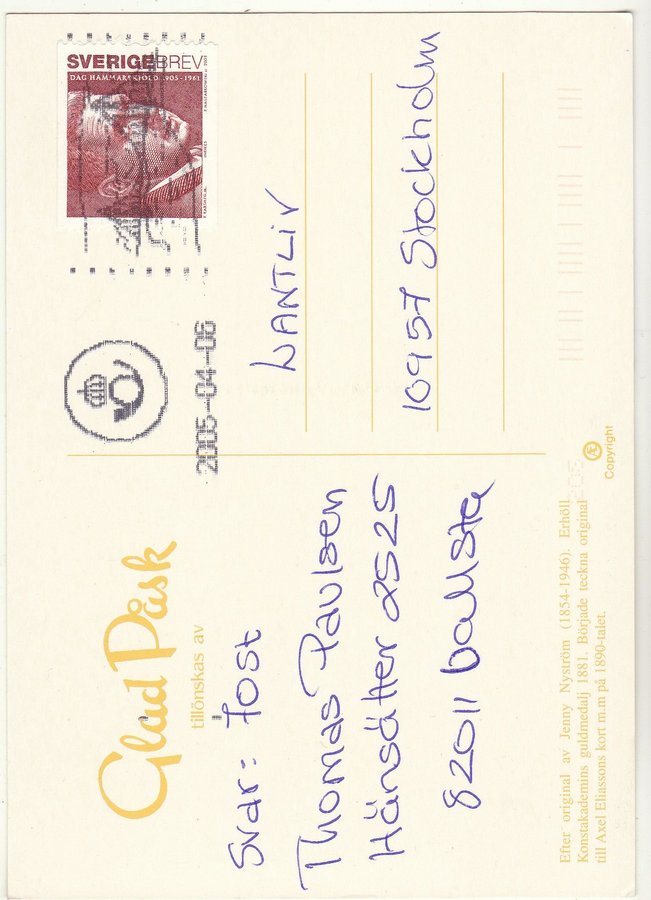 Glad Påsk
tillönskas av
Svar: Tost
Thomas Paulsen
Hänsätter 2525
82011 Vallsta
Efter original av Jenny Nyström (1854-1946). Erhöll
Konstakademins guldmedalj 1881. Började teckna original
till Axel Eliassons kort m.m på 1890-talet.
SVERIGE BREV
DAG HAMMARSKJÖLD 1905-1961
2005-04-06
LANTLIV
10957 Stockholm
Æ
Copyright